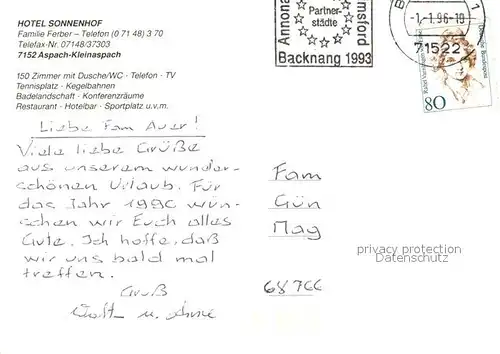 HOTEL SONNENHOF
Familie Ferber – Telefon (0 71 48) 3 70
Telefax-Nr. 07148/37303
7152 Aspach-Kleinaspach
150 Zimmer mit Dusche/WC · Telefon · TV
Tennisplatz · Kegelbahnen
Badelandschaft · Konferenzräume
Restaurant · Hotelbar · Sportplatz u.v.m.
Liebe Fam Auer!
Viele liebe Grüße
aus unserem wunder-
schönen Urlaub. Für
das Jahr 1996 wün-
schen wir Euch alles
Gute. Ich hoffe, daß
wir uns bald mal
treffen.
Gruß
u.
Annona
Partner-
städte
msford
Backnang 1993
1
-1.-1.96-10
71522
80
Deutsche Bundespost
Fam
Gün
Mag
68766
privacy protection
Datenschutz